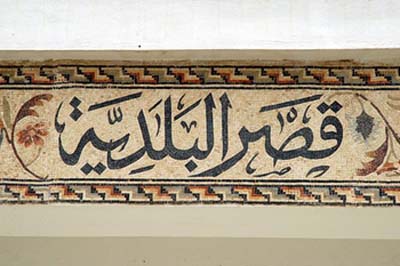 قصر البلدية